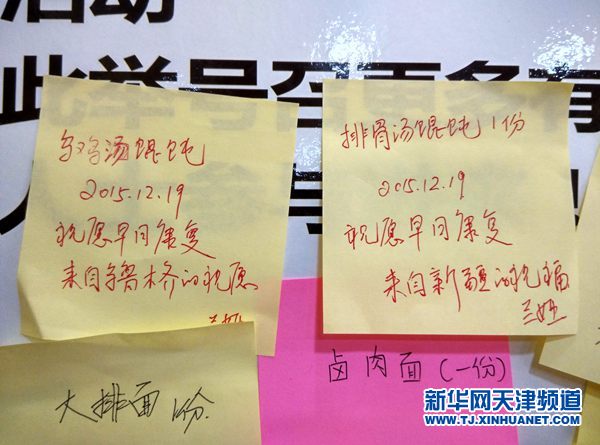 活动
此举号召更多有
人参与
乌鸡汤馄饨
2015.12.19
祝愿早日康复
来自乌鲁木齐的祝愿
排骨汤馄饨1份
2015.12.19
祝愿早日康复
来自新疆的祝福
大排面1份.
卤肉面(一份)
新华网天津频道
WWW.TJ.XINHUANET.COM